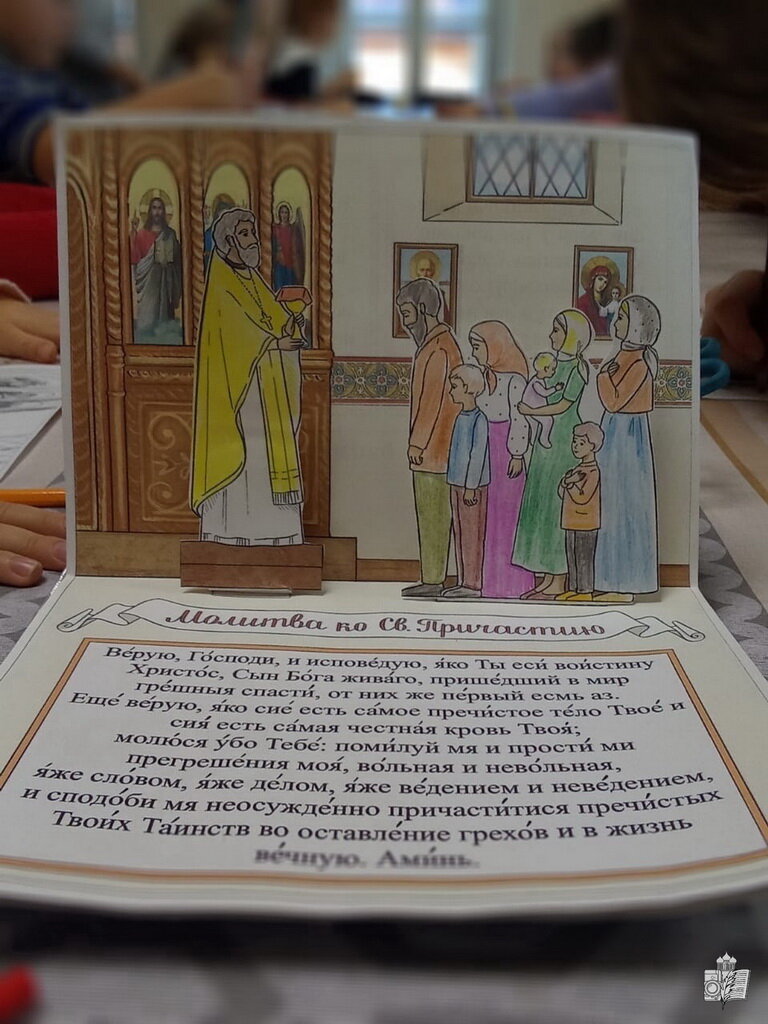 Молитва ко Св. Причастию
Ве́рую, Го́споди, и испове́дую, я́ко Ты еси́ вои́стину
Христо́с, Сын Бо́га жива́го, прише́дший в мир
гре́шныя спасти́, от них же пе́рвый есмь аз.
Еще́ ве́рую, я́ко сие́ есть са́мое пречи́стое те́ло Твое́ и
сия́ есть са́мая честна́я кровь Твоя́;
молю́ся у́бо Тебе́: поми́луй мя и прости́ ми
прегреше́ния моя́, во́льная и нево́льная,
я́же сло́вом, я́же де́лом, я́же ве́дением и неве́дением,
и сподо́би мя неосужде́нно причасти́тися пречи́стых
Твои́х Та́инств во оставле́ние грехо́в и в жизнь
ве́чную. Ами́нь.